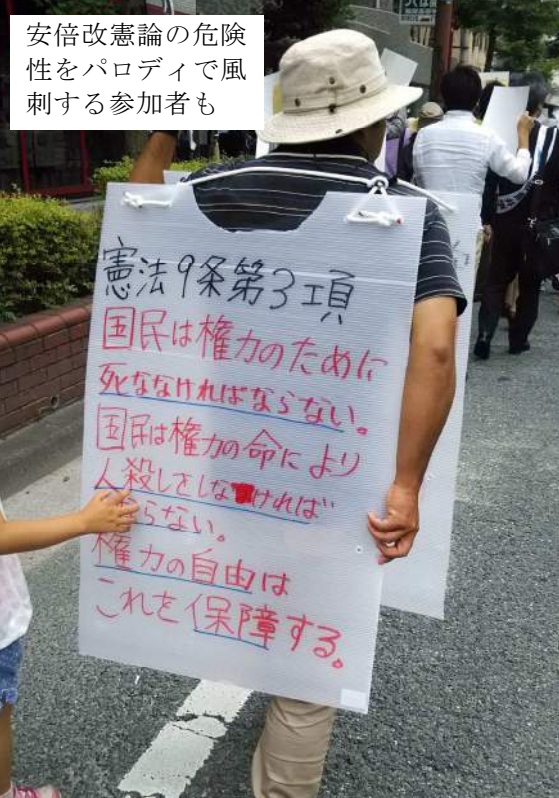 安倍改憲論の危険
性をパロディで風
刺する参加者も
憲法9条第3項
国民は権力のために
死ななければならない。
国民は権力の命により
人殺しをしなければ
らない。
権力の自由は
これを保障する。